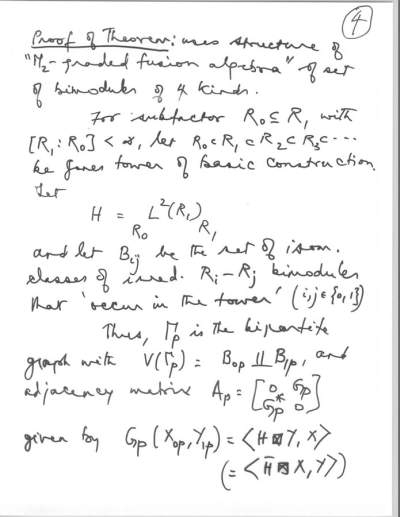 4
Proof of Theorem: uses structure of
"M₂-graded fusion algebra" of set
of bimodules of 4 kinds.
For subfactor R₀ ⊆ R₁ with
[R₁:R₀] < ∞, let R₀ ⊂ R₁ ⊂ R₂ ⊂ R₃ ⊂ ...
be Jones tower of basic construction.
Let
H = R₀ L²(R₁) R₁
and let Bᵢⱼ be the set of isom.
classes of irred. Rᵢ - Rⱼ bimodules
that 'occur in the tower' (i,j ∈ {0,1})
Thus, Γp is the bipartite
graph with V(Γp) = B₀p ⨿ B₁p, and
adjacency matrix Ap = [0 Gp
Gp* 0]
given by Gp(X₀p, Y₁p) = <H ⊠ Y, X>
(= <H̄ ⊠ X, Y>)